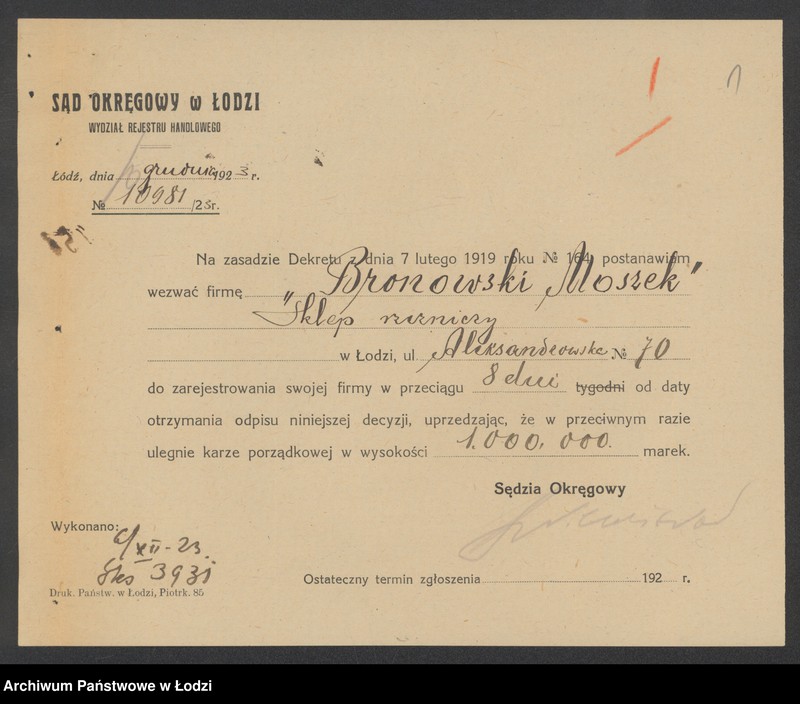 SĄD OKRĘGOWY w ŁODZI
WYDZIAŁ REJESTRU HANDLOWEGO
Łódź, dnia grudnia 1923 r.
№ 10981/23r.
Na zasadzie Dekretu z dnia 7 lutego 1919 roku № 164 postanawiam
wezwać firmę „Bronowski Moszek"
Sklep rzeźniczy
w Łodzi, ul. Aleksandrowska № 70
do zarejestrowania swojej firmy w przeciągu 8 dni tygodni od daty
otrzymania odpisu niniejszej decyzji, uprzedzając, że w przeciwnym razie
ulegnie karze porządkowej w wysokości 1.000.000. marek.
Sędzia Okręgowy
Wykonano:
6/XII-23.
3931
Ostateczny termin zgłoszenia 192 r.
Druk. Państw. w Łodzi, Piotrk. 85
Archiwum Państwowe w Łodzi